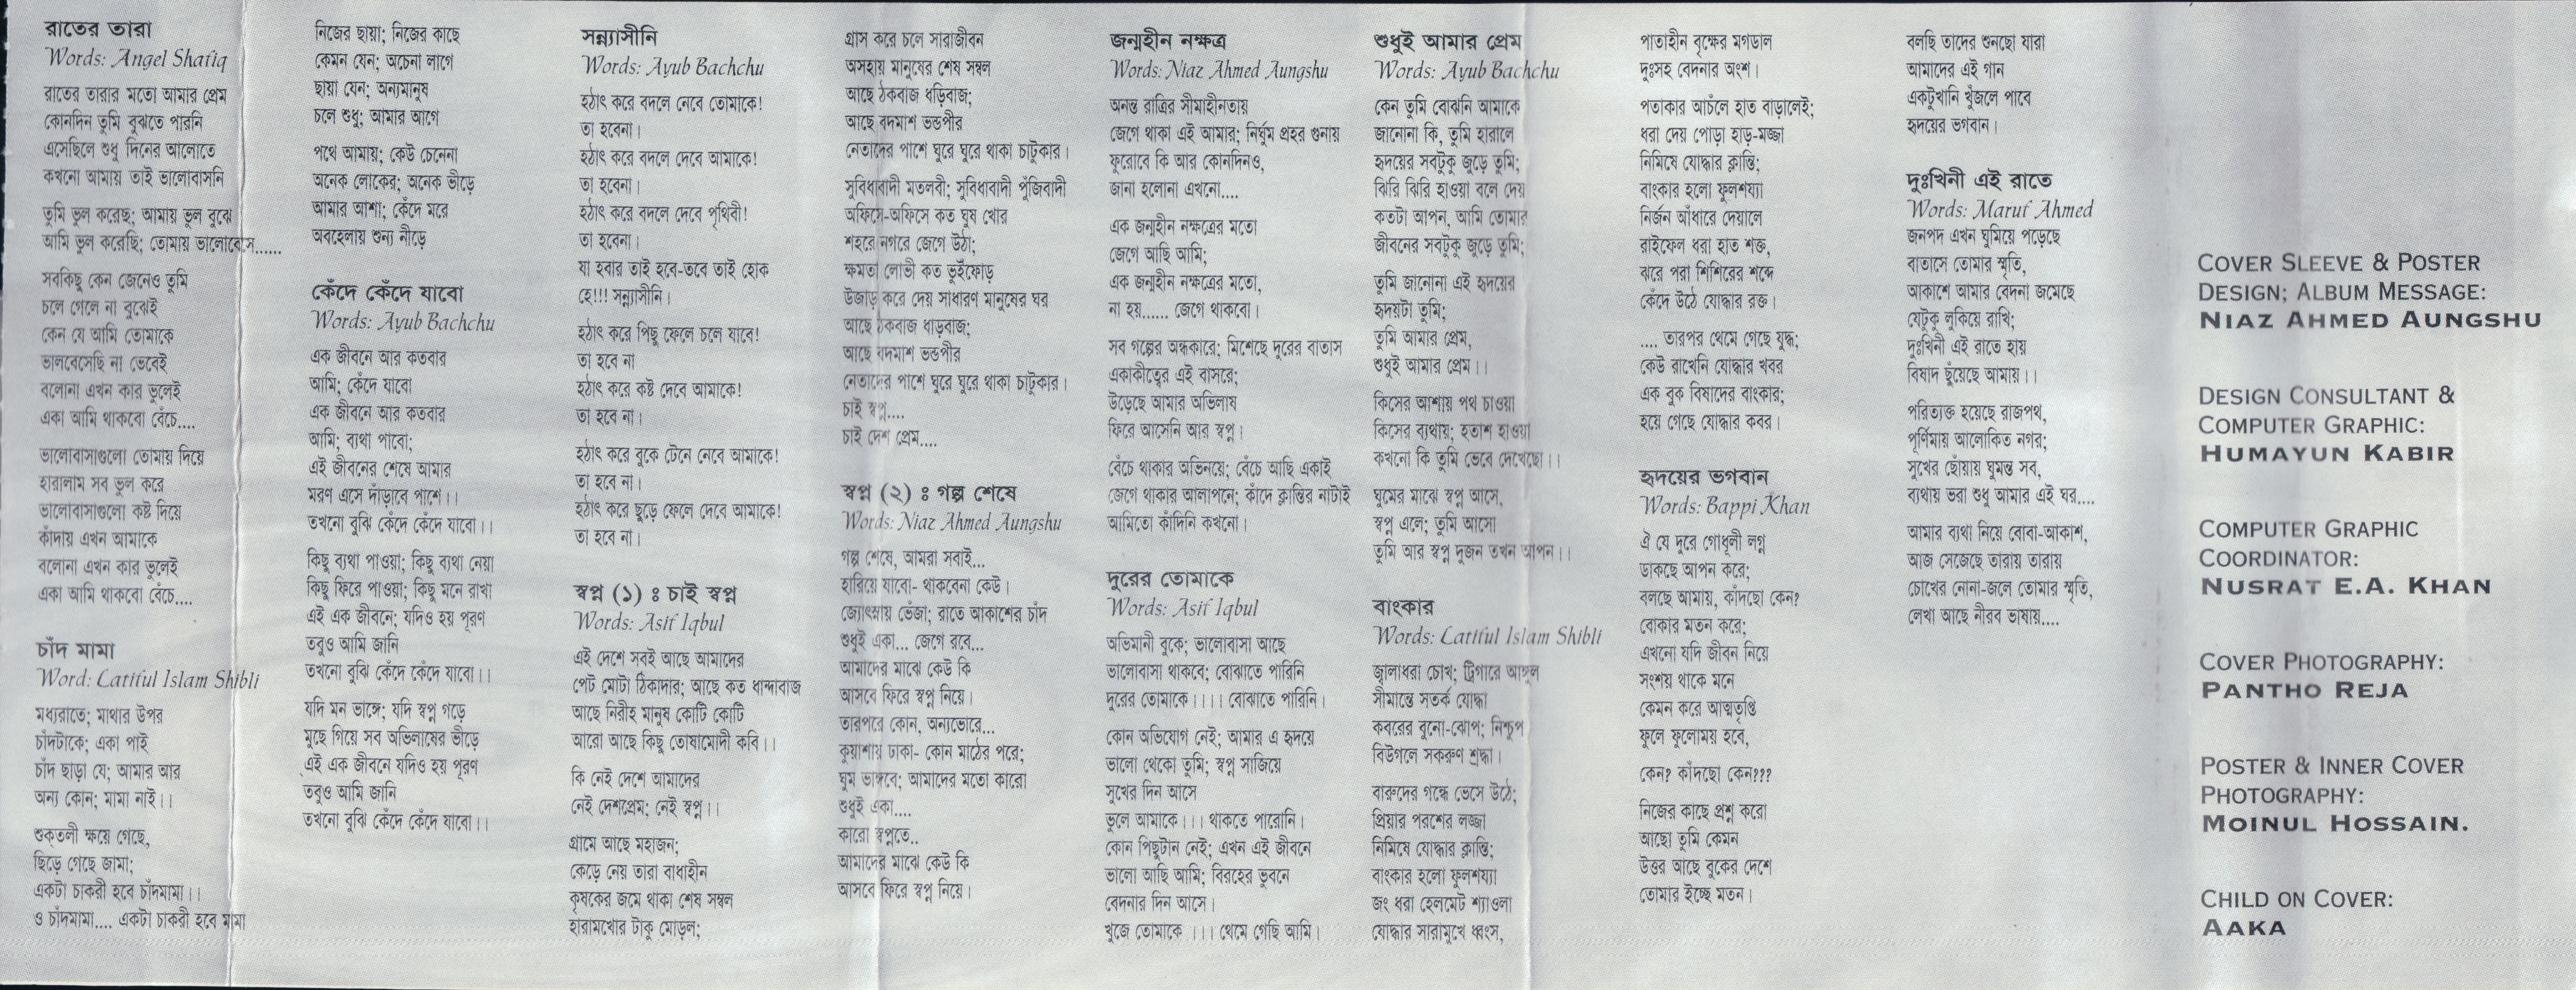 রাতের তারা
Words: Angel Shafiq
রাতের তারার মতো আমার প্রেম
কোনদিন তুমি বুঝতে পারনি
এসেছিলে শুধু দিনের আলোতে
কখনো আমায় তাই ভালোবাসনি
তুমি ভুল করেছ; আমায় ভুল বুঝে
আমি ভুল করেছি; তোমায় ভালোবেসে......
সবকিছু কেন জেনেও তুমি
চলে গেলে না বুঝেই
কেন যে আমি তোমাকে
ভালবেসেছি না ভেবেই
বলোনা এখন কার ভুলেই
একা আমি থাকবো বেঁচে....
ভালোবাসাগুলো তোমায় দিয়ে
হারালাম সব ভুল করে
ভালোবাসাগুলো কষ্ট দিয়ে
কাঁদায় এখন আমাকে
বলোনা এখন কার ভুলেই
একা আমি থাকবো বেঁচে....
চাঁদ মামা
Word: Latiful Islam Shibli
মধ্যরাতে; মাথার উপর
চাঁদটাকে; একা পাই
চাঁদ ছাড়া যে; আমার আর
অন্য কোন; মামা নাই।।
শুক্‌তলী ক্ষয়ে গেছে,
ছিঁড়ে গেছে জামা;
একটা চাকরী হবে চাঁদমামা।।
ও চাঁদমামা.... একটা চাকরী হবে মামা
নিজের ছায়া; নিজের কাছে
কেমন যেন; অচেনা লাগে
ছায়া যেন; অন্যমানুষ
চলে শুধু; আমার আগে
পথে আমায়; কেউ চেনেনা
অনেক লোকের; অনেক ভীড়ে
আমার আশা; কেঁদে মরে
অবহেলায় শুন্য নীড়ে
কেঁদে কেঁদে যাবো
Words: Ayub Bachchu
এক জীবনে আর কতবার
আমি; কেঁদে যাবো
এক জীবনে আর কতবার
আমি; ব্যথা পাবো;
এই জীবনের শেষে আমার
মরণ এসে দাঁড়াবে পাশে।।
তখনো বুঝি কেঁদে কেঁদে যাবো।।
কিছু ব্যথা পাওয়া; কিছু ব্যথা নেয়া
কিছু ফিরে পাওয়া; কিছু মনে রাখা
এই এক জীবনে; যদিও হয় পূরণ
তবুও আমি জানি
তখনো বুঝি কেঁদে কেঁদে যাবো।।
যদি মন ভাঙ্গে; যদি স্বপ্ন গড়ে
মুছে গিয়ে সব অভিলাষের ভীড়ে
এই এক জীবনে যদিও হয় পূরণ
তবুও আমি জানি
তখনো বুঝি কেঁদে কেঁদে যাবো।।
সন্ন্যাসীনি
Words: Ayub Bachchu
হঠাৎ করে বদলে নেবে তোমাকে!
তা হবেনা।
হঠাৎ করে বদলে দেবে আমাকে!
তা হবেনা।
হঠাৎ করে বদলে দেবে পৃথিবী!
তা হবেনা।
যা হবার তাই হবে-তবে তাই হোক
হে!!! সন্ন্যাসীনি।
হঠাৎ করে পিছু ফেলে চলে যাবে!
তা হবে না
হঠাৎ করে কষ্ট দেবে আমাকে!
তা হবে না।
হঠাৎ করে বুকে টেনে নেবে আমাকে!
তা হবে না।
হঠাৎ করে ছুড়ে ফেলে দেবে আমাকে!
তা হবে না।
স্বপ্ন (১) : চাই স্বপ্ন
Words: Asif Iqbul
এই দেশে সবই আছে আমাদের
পেট মোটা ঠিকাদার; আছে কত ধান্দাবাজ
আছে নিরীহ মানুষ কোটি কোটি
আরো আছে কিছু তোষামোদী কবি।।
কি নেই দেশে আমাদের
নেই দেশপ্রেম; নেই স্বপ্ন।।
গ্রামে আছে মহাজন;
কেড়ে নেয় তারা বাধাহীন
কৃষকের জমে থাকা শেষ সম্বল
হারামখোর টাকু মোড়ল;
গ্রাস করে চলে সারাজীবন
অসহায় মানুষের শেষ সম্বল
আছে ঠকবাজ ধড়িবাজ;
আছে বদমাশ ভন্ডপীর
নেতাদের পাশে ঘুরে ঘুরে থাকা চাটুকার।
সুবিধাবাদী মতলবী; সুবিধাবাদী পুঁজিবাদী
অফিসে-অফিসে কত ঘুষ খোর
শহরে নগরে জেগে উঠা;
ক্ষমতা লোভী কত ভুইঁফোড়
উজাড় করে দেয় সাধারণ মানুষের ঘর
আছে ঠকবাজ ধাড়বাজ;
আছে বদমাশ ভন্ডপীর
নেতাদের পাশে ঘুরে ঘুরে থাকা চাটুকার।
চাই স্বপ্ন....
চাই দেশ প্রেম....
স্বপ্ন (২) : গল্প শেষে
Words: Niaz Ahmed Aungshu
গল্প শেষে, আমরা সবাই...
হারিয়ে যাবো- থাকবেনা কেউ।
জ্যোৎস্নায় ভেঁজা; রাতে আকাশের চাঁদ
শুধুই একা... জেগে রবে...
আমাদের মাঝে কেউ কি
আসবে ফিরে স্বপ্ন নিয়ে।
তারপরে কোন, অন্যভোরে...
কুয়াশায় ঢাকা- কোন মাঠের পরে;
ঘুম ভাঙ্গবে; আমাদের মতো কারো
শুধুই একা....
কারো স্বপ্নতে..
আমাদের মাঝে কেউ কি
আসবে ফিরে স্বপ্ন নিয়ে।
জন্মহীন নক্ষত্র
Words: Niaz Ahmed Aungshu
অনন্ত রাত্রির সীমাহীনতায়
জেগে থাকা এই আমার; নির্ঘুম প্রহর গুনায়
ফুরোবে কি আর কোনদিনও,
জানা হলোনা এখনো....
এক জন্মহীন নক্ষত্রের মতো
জেগে আছি আমি;
এক জন্মহীন নক্ষত্রের মতো,
না হয়...... জেগে থাকবো।
সব গল্পের অন্ধকারে; মিশেছে দুরের বাতাস
একাকীত্বের এই বাসরে;
উড়েছে আমার অভিলাষ
ফিরে আসেনি আর স্বপ্ন।
বেঁচে থাকার অভিনয়ে; বেঁচে আছি একাই
জেগে থাকার আলাপনে; কাঁদে ক্লান্তির নাটাই
আমিতো কাঁদিনি কখনো।
দুরের তোমাকে
Words: Asif Iqbul
অভিমানী বুকে; ভালোবাসা আছে
ভালোবাসা থাকবে; বোঝাতে পারিনি
দুরের তোমাকে।।।। বোঝাতে পারিনি।
কোন অভিযোগ নেই; আমার এ হৃদয়ে
ভালো থেকো তুমি; স্বপ্ন সাজিয়ে
সুখের দিন আসে
ভুলে আমাকে।।। থাকতে পারোনি।
কোন পিছুটান নেই; এখন এই জীবনে
ভালো আছি আমি; বিরহের ভুবনে
বেদনার দিন আসে।
খুজে তোমাকে ।।। থেমে গেছি আমি।
শুধুই আমার প্রেম
Words: Ayub Bachchu
কেন তুমি বোঝনি আমাকে
জানোনা কি, তুমি হারালে
হৃদয়ের সবটুকু জুড়ে তুমি;
ঝিরি ঝিরি হাওয়া বলে দেয়
কতটা আপন, আমি তোমার
জীবনের সবটুকু জুড়ে তুমি;
তুমি জানোনা এই হৃদয়ের
হৃদয়টা তুমি;
তুমি আমার প্রেম,
শুধুই আমার প্রেম।।
কিসের আশায় পথ চাওয়া
কিসের ব্যথায়; হতাশ হাওয়া
কখনো কি তুমি ভেবে দেখেছো।।
ঘুমের মাঝে স্বপ্ন আসে,
স্বপ্ন এলে; তুমি আসো
তুমি আর স্বপ্ন দুজন তখন আপন।।
বাংকার
Words: Latiful Islam Shibli
জ্বালাধরা চোখ; ট্রিগারে আঙ্গুল
সীমান্তে সতর্ক যোদ্ধা
কবরের বুনো-ঝোপ; নিশ্চুপ
বিউগলে সকরুণ শ্রদ্ধা।
বারুদের গন্ধে ভেসে উঠে;
প্রিয়ার পরশের লজ্জা
নিমিষে যোদ্ধার ক্লান্তি;
বাংকার হলো ফুলশয্যা
জং ধরা হেলমেট শ্যাওলা
যোদ্ধার সারামুখে ধ্বংস,
পাতাহীন বৃক্ষের মগডাল
দুঃসহ বেদনার অংশ।
পতাকার আচঁলে হাত বাড়ালেই;
ধরা দেয় পোড়া হাড়-মজ্জা
নিমিষে যোদ্ধার ক্লান্তি;
বাংকার হলো ফুলশয্যা
নির্জন আঁধারে দেয়ালে
রাইফেল ধরা হাত শক্ত,
ঝরে পরা শিশিরের শব্দে
কেঁদে উঠে যোদ্ধার রক্ত।
.... তারপর থেমে গেছে যুদ্ধ;
কেউ রাখেনি যোদ্ধার খবর
এক বুক বিষাদের বাংকার;
হয়ে গেছে যোদ্ধার কবর।
হৃদয়ের ভগবান
Words: Bappi Khan
ঐ যে দুরে গোধূলী লগ্ন
ডাকছে আপন করে;
বলছে আমায়, কাঁদছো কেন?
বোকার মতন করে;
এখনো যদি জীবন নিয়ে
সংশয় থাকে মনে
কেমন করে আত্মতৃপ্তি
ফুলে ফুলোময় হবে,
কেন? কাঁদছো কেন???
নিজের কাছে প্রশ্ন করো
আছো তুমি কেমন
উত্তর আছে বুকের দেশে
তোমার ইচ্ছে মতন।
বলছি তাদের শুনছো যারা
আমাদের এই গান
একটুখানি খুঁজলে পাবে
হৃদয়ের ভগবান।
দুঃখিনী এই রাতে
Words: Maruf Ahmed
জনপদ এখন ঘুমিয়ে পড়েছে
বাতাসে তোমার স্মৃতি,
আকাশে আমার বেদনা জমেছে
যেটুকু লুকিয়ে রাখি;
দুঃখিনী এই রাতে হায়
বিষাদ ছুঁয়েছে আমায়।।
পরিত্যক্ত হয়েছে রাজপথ,
পূর্ণিমায় আলোকিত নগর;
সুখের ছোঁয়ায় ঘুমন্ত সব,
ব্যথায় ভরা শুধু আমার এই ঘর....
আমার ব্যথা নিয়ে বোবা-আকাশ,
আজ সেজেছে তারায় তারায়
চোখের নোনা-জলে তোমার স্মৃতি,
লেখা আছে নীরব ভাষায়....
COVER SLEEVE & POSTER
DESIGN; ALBUM MESSAGE:
NIAZ AHMED AUNGSHU
DESIGN CONSULTANT &
COMPUTER GRAPHIC:
HUMAYUN KABIR
COMPUTER GRAPHIC
COORDINATOR:
NUSRAT E.A. KHAN
COVER PHOTOGRAPHY:
PANTHO REJA
POSTER & INNER COVER
PHOTOGRAPHY:
MOINUL HOSSAIN.
CHILD ON COVER:
AAKA